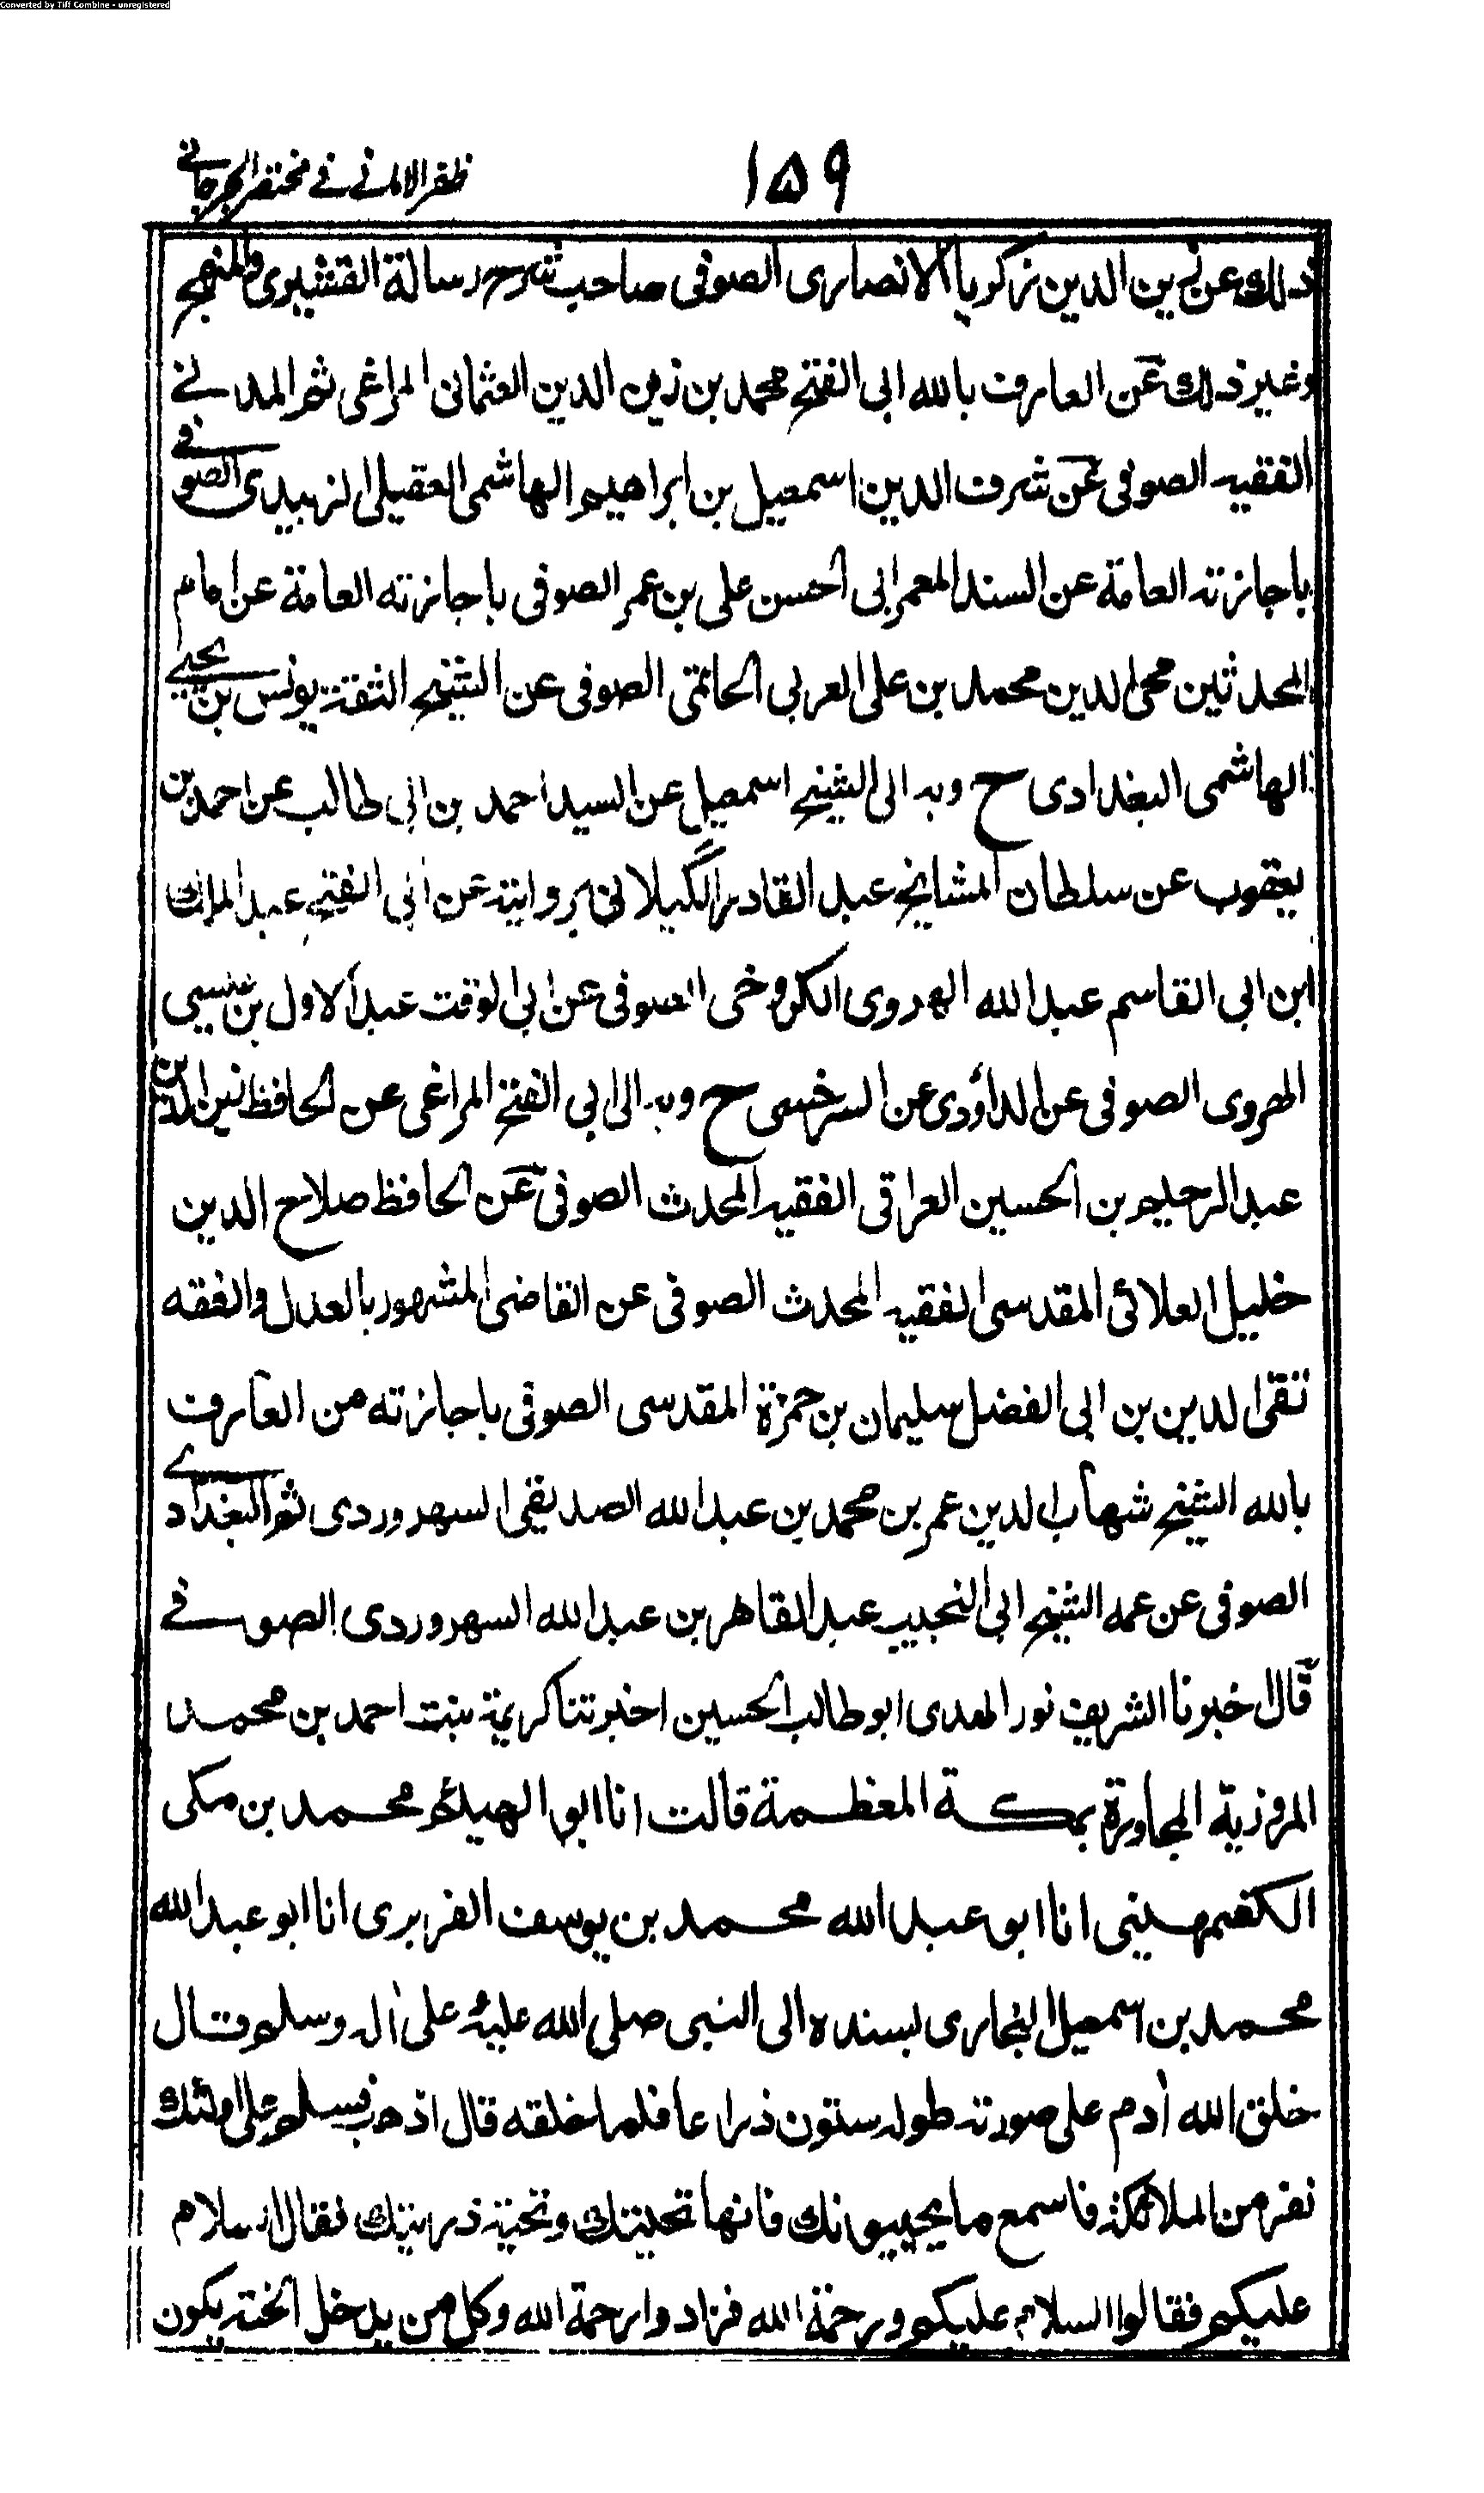 Converted by Tiff Combine - unregistered
١٥٩ ظفر الامانی فی مختصر الجرجانی
ذلك عن زين الدين زكريا الانصاری الصوفی صاحب شرح رسالة القشيری والمنهج
وغير ذلك عن العارف بالله ابی الفتح محمد بن زين الدين العثمانی المراغی ثم المدنی
الفقيه الصوفی عن شرف الدين اسمعيل بن ابراهيم الهاشمی العقيلی الزبيدی الصوفی
باجازته العامة عن المسند المعمر ابی الحسن علی بن عمر الصوفی باجازته العامة عن امام
المحدثين محی الدين محمد بن علی العربی الحاتمی الصوفی عن الشيخ الثقة يونس بن يحيی
الهاشمی البغدادی ح وبه الی الشيخ اسمعيل عن السيد احمد بن ابی طالب عن احمد بن
يعقوب عن سلطان المشايخ عبد القادر الگيلانی بروايته عن ابی الفتح عبد الملك
ابن ابی القاسم عبد الله الهروی الكروخی الصوفی عن ابی الوقت عبد الاول بن عيسی
الهروی الصوفی عن الداؤدی عن السرخسی ح وبه الی ابی الفتح المراغی عن الحافظ زين الدين
عبد الرحيم بن الحسين العراقی الفقيه المحدث الصوفی عن الحافظ صلاح الدين
خليل العلائی المقدسی الفقيه المحدث الصوفی عن القاضی المشهور بالعدل والفقه
تقی الدين بن ابی الفضل سليمان بن حمزة المقدسی الصوفی باجازته من العارف
بالله الشيخ شهاب الدين عمر بن محمد بن عبد الله الصديقی السهروردی ثم البغدادی
الصوفی عن عمه الشيخ ابی النجيب عبد القاهر بن عبد الله السهروردی الصوفی
قال اخبرنا الشريف نور الهدی ابو طالب الحسين اخبرتنا كريمة بنت احمد بن محمد
المروزية المجاورة بمكة المعظمة قالت انا ابو الهيثم محمد بن مكی
الكشميهنی انا ابو عبد الله محمد بن يوسف الفربری انا ابو عبد الله
محمد بن اسمعيل البخاری بسنده الی النبی صلی الله عليه وعلی اله وسلم قال
خلق الله آدم علی صورته طوله ستون ذراعا فلما خلقه قال اذهب فسلم علی اولئك
نفر من الملائكة فاسمع ما يحييونك فانها تحيتك وتحية ذريتك فقال السلام
عليكم فقالوا السلام عليكم ورحمة الله فزادوا رحمة الله وكل من يدخل الجنة يكون